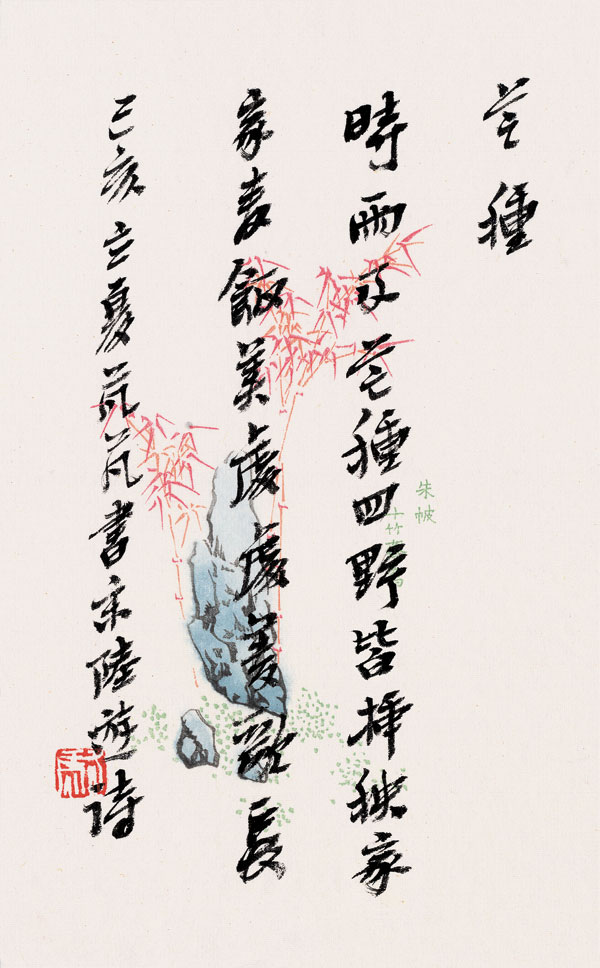 芒種
時雨及芒種四野皆插秧家
家麥飯美處處菱歌長
己亥立夏芃芃書宋陸遊詩
朱帔
十竹